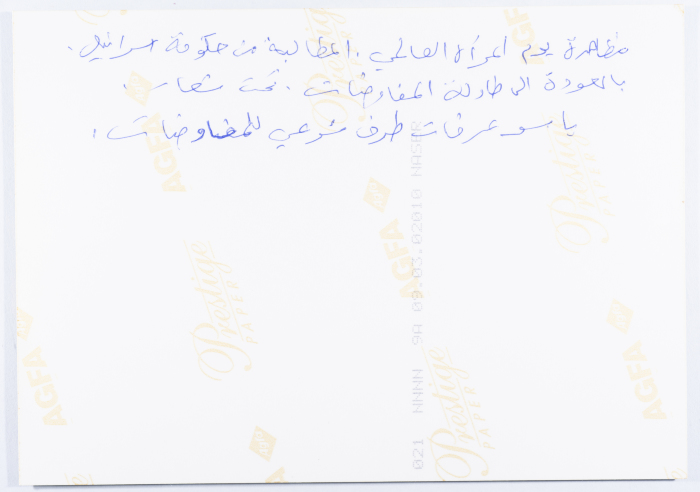 مظاهرة يوم المرأة العالمي. المطالبة من حكومة اسرائيل.
بالعودة الى طاولة المفاوضات. تحت شعار.
ياسر عرفات طرف شرعي للمفاوضات.
AGFA
AGFA
AGFA
AGFA
AGFA
Prestige
PAPER
Prestige
PAPER
Prestige
PAPER
021 NNNN 9A 09.03.02010 NASAR